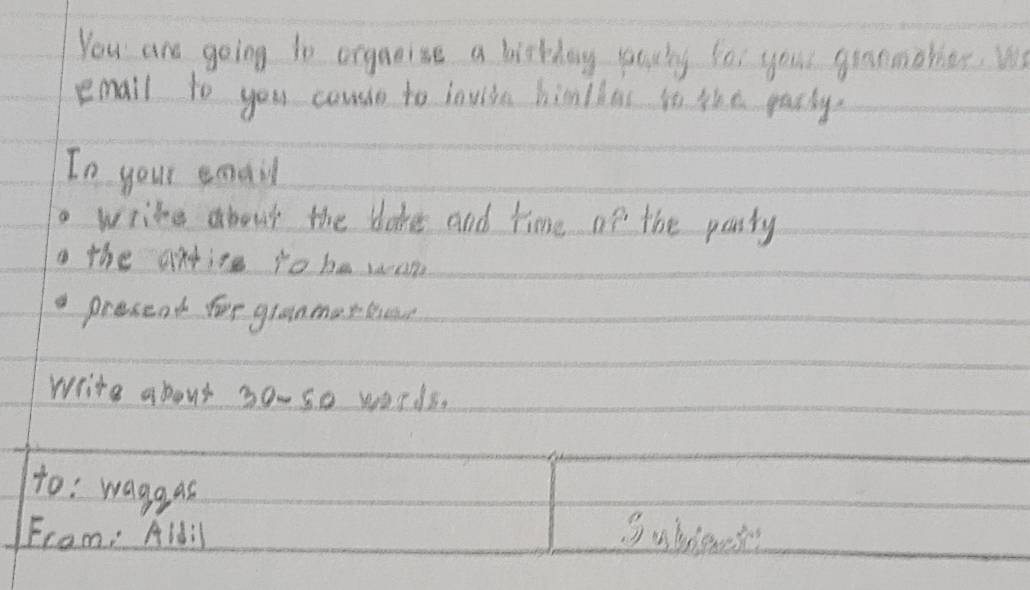 You are going to organise a birthday party for your granmother. W
email to you cousin to invite him/her to the party.
In your email
• write about the date and time of the party
• the attire to be worn
• present for granmother
Write about 30-50 words.
to: waggas
From: Aldil
Subject: